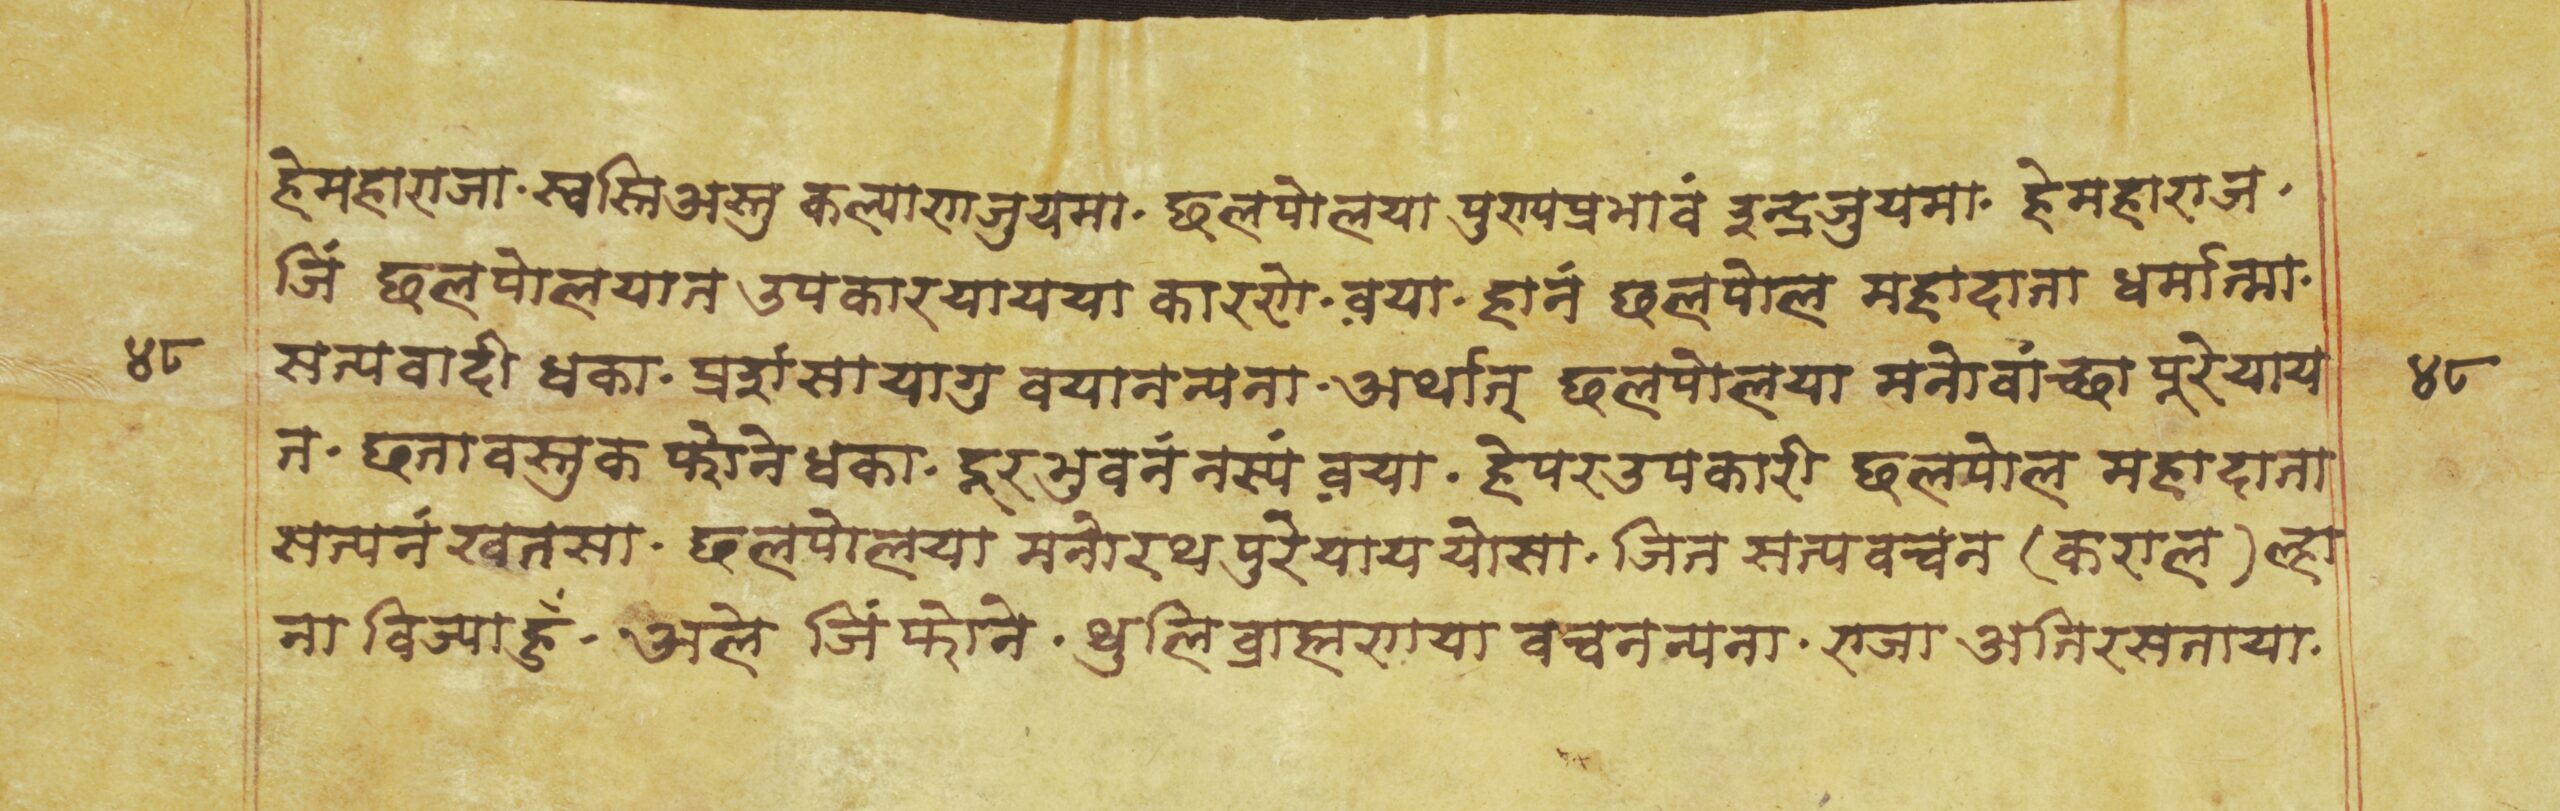 हेमहाराजा. स्वस्तिअस्तु कल्याणजुयमा. छलपोलया पुण्यप्रभावं इन्द्रजुयमा. हेमहाराज.
जिं छलपोलयात उपकारयायया कारणे. व़या. हानं छलपोल महादाता धर्मात्मा.
४८ सत्यवादी धका. प्रशंसायागु वयानन्यना. अर्थात् छलपोलया मनोवांच्छा पूरेयाय ४८
त. छतावस्तुक फोने धका. दूरभुवनंनस्यं व़या. हेपरउपकारी छलपोल महादाता
सत्यनं खतसा. छलपोलया मनोरथपुरेयाययोसा. जित सत्यवचन (कराल) ल्हा
ना विज्याहुँ. अले जिं फोने. थुलि ब्राह्मणया वचनन्यना. राजा अतिरसताया.